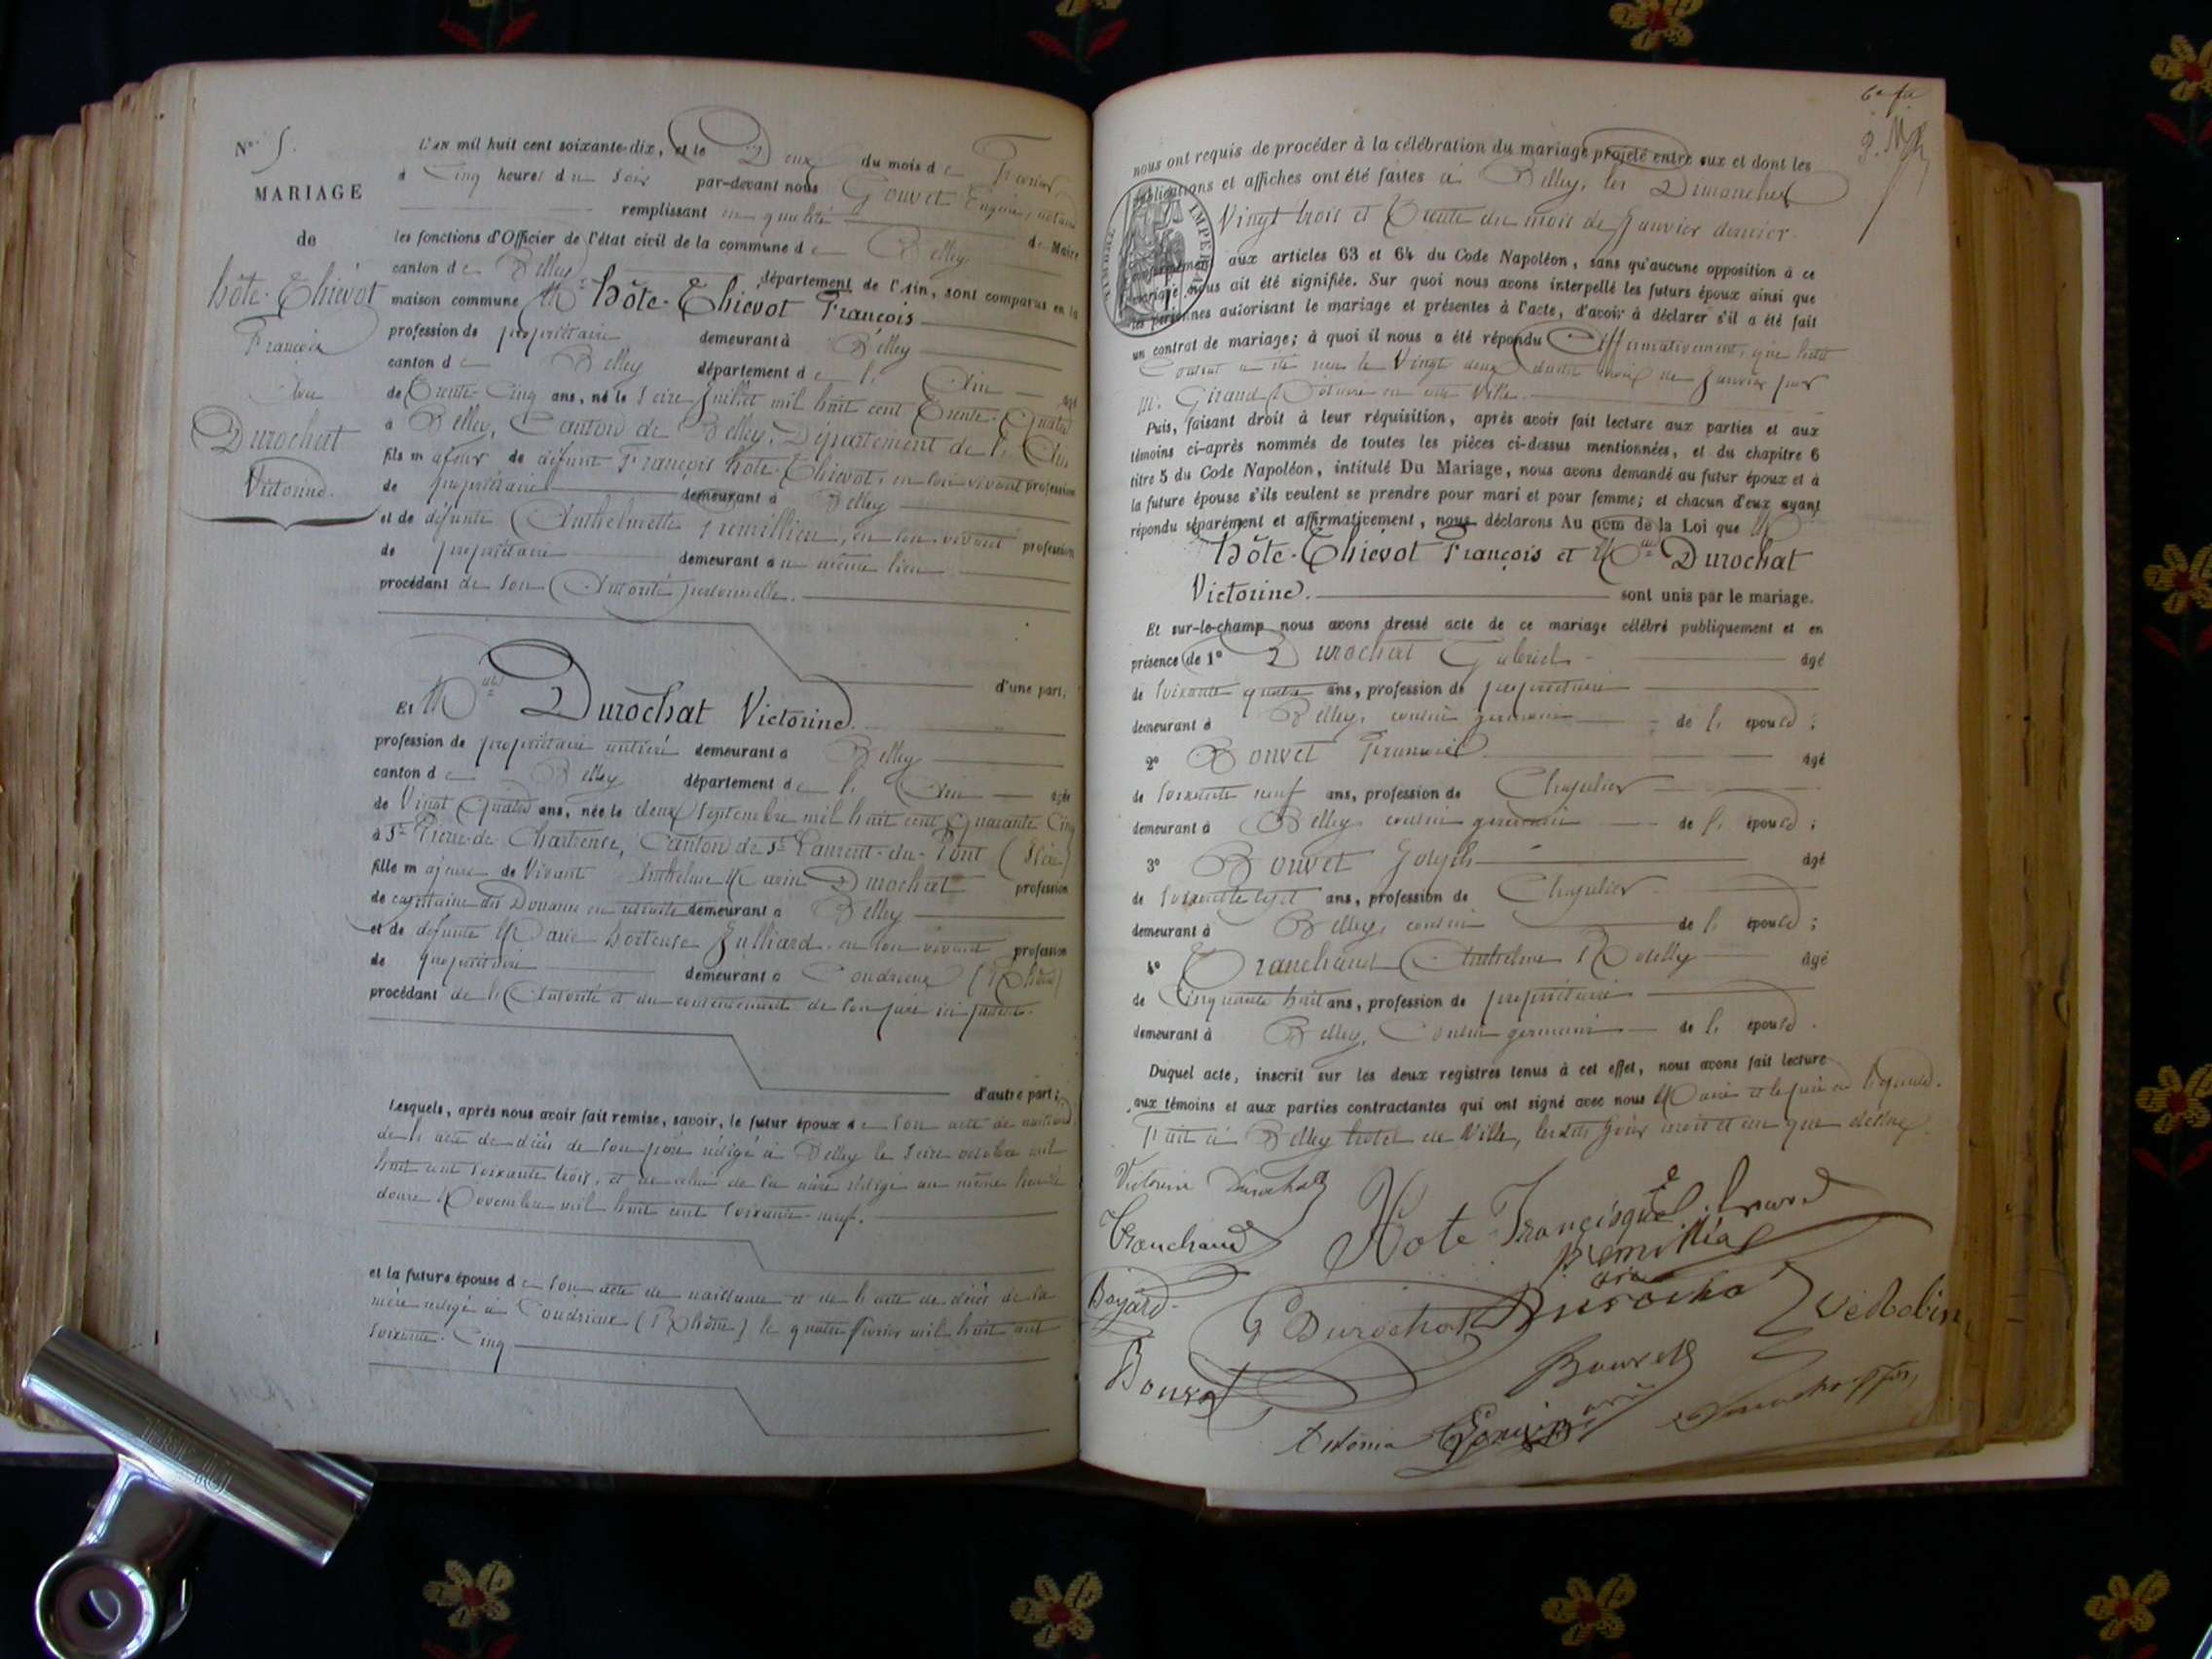 N° 5.
MARIAGE
de
hôte-Thiévot
François
Avec
Durochat
Victorine.
L'AN mil huit cent soixante-dix, et le Deux du mois de Février
à Cinq heures du soir par-devant nous Gouvet Eugène,
remplissant en qualité de Maire
les fonctions d'Officier de l'état civil de la commune de Belley
canton de Belley département de l'Ain, sont comparus en la
maison commune Mr hôte-Thiévot François
profession de propriétaire demeurant à Belley
canton de Belley département de l'Ain âgé
de Trente-Cinq ans, né le seize Juillet mil huit cent Trente-Quatre
à Belley, Canton de Belley, Département de l'Ain
fils majeur de défunt François hôte-Thiévot, en son vivant profession
de propriétaire demeurant à Belley
et de défunte Anthelmette Premillieu, en son vivant profession
de propriétaire demeurant au même lieu
procédant de son Autorité personnelle.
d'une part;
Et Mlle Durochat Victorine.
profession de propriétaire rentière demeurant à Belley
canton de Belley département de l'Ain âgée
de Vingt Quatre ans, née le deux Septembre mil huit cent Quarante Cinq
à St Pierre-de Chartreuse, Canton de St Laurent-du-Pont (Isère)
fille majeure de Vivant Anthelme Marin Durochat profession
de capitaine des Douanes en retraite demeurant à Belley
et de défunte Marie hortense Julliard, en son vivant profession
de propriétaire demeurant à Condrieux (Rhône)
procédant de l'Autorité et du consentement de son père ici présent.
d'autre part;
Lesquels, après nous avoir fait remise, savoir, le futur époux de son acte de naissance
de l'acte de décès de son père rédigé à Belley le seize octobre mil
huit cent soixante trois, et de celui de sa mère rédigé au même lieu le
douze Novembre mil huit cent soixante-neuf.
et la future épouse de son acte de naissance et de l'acte de décès de sa
mère rédigé à Condrieux (Rhône) le quatre février mil huit cent
soixante-Cinq
nous ont requis de procéder à la célébration du mariage projeté entre eux et dont les
publications et affiches ont été faites à Belley, les Dimanches
Vingt trois et Trente du mois de Janvier dernier.
TIMBRE IMPERIAL
conformément aux articles 63 et 64 du Code Napoléon, sans qu'aucune opposition à ce
mariage nous ait été signifiée. Sur quoi nous avons interpellé les futurs époux ainsi que
les personnes autorisant le mariage et présentes à l'acte, d'avoir à déclarer s'il a été fait
un contrat de mariage; à quoi il nous a été répondu Affirmativement, que ledit
Contrat a été reçu le Vingt deux dudit mois de Janvier par
Me Giraud Notaire en cette Ville.
Puis, faisant droit à leur réquisition, après avoir fait lecture aux parties et aux
témoins ci-après nommés de toutes les pièces ci-dessus mentionnées, et du chapitre 6
titre 5 du Code Napoléon, intitulé Du Mariage, nous avons demandé au futur époux et à
la future épouse s'ils veulent se prendre pour mari et pour femme; et chacun d'eux ayant
répondu séparément et affirmativement, nous déclarons Au nom de la Loi que Mr
hôte-Thiévot François et Mlle Durochat
Victorine. sont unis par le mariage.
Et sur-le-champ nous avons dressé acte de ce mariage célébré publiquement et en
présence de 1° Durochat Gabriel âgé
de soixante quatre ans, profession de propriétaire
demeurant à Belley, cousin germain de l'épouse;
2° Bouvet François âgé
de soixante neuf ans, profession de Chapelier
demeurant à Belley cousin germain de l'épouse;
3° Bouvet Joseph âgé
de soixante sept ans, profession de Chapelier
demeurant à Belley, cousin de l'épouse;
4° Tranchand Anthelme âgé
de Cinquante huit ans, profession de propriétaire
demeurant à Belley, Cousin germain de l'épouse.
Duquel acte, inscrit sur les deux registres tenus à cet effet, nous avons fait lecture
aux témoins et aux parties contractantes qui ont signé avec nous Maire et le père de l'épouse.
Fait à Belley hôtel de Ville, lesdits jour mois et an que dessus.
Victorine Durochat
Hote Francisque
Tranchand
Premillieu
Bayard
G Durochat
Durochat
Ve Robin
Bouvet
Bouvet